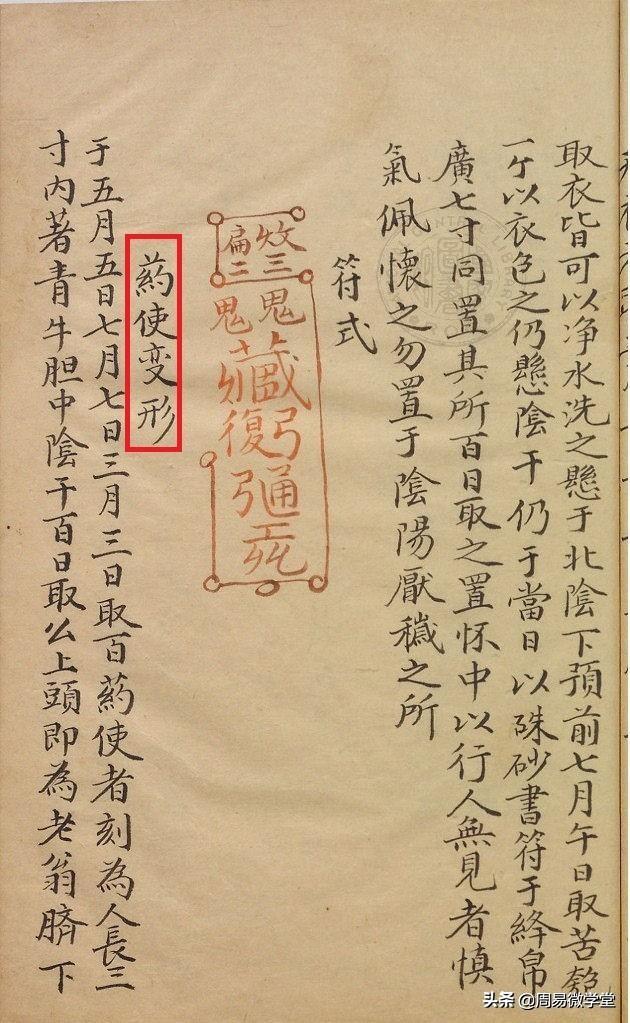 取衣皆可以净水洗之懸于北陰下預前七月午日取苦匏
一ケ以衣色之仍懸陰干仍于當日以硃砂書符于絳帛
廣七寸同置具所百日取之置怀中以行人無見者慎
氣佩懷之勿置于陰陽厭穢之所
符式
鬼
鬼
藏
復
葯使变形
于五月五日七月七日三月三日取百葯使者刻為人長三
寸内著青牛胆中陰干百日取公上頭即為老翁臍下
头条 @周易微学堂